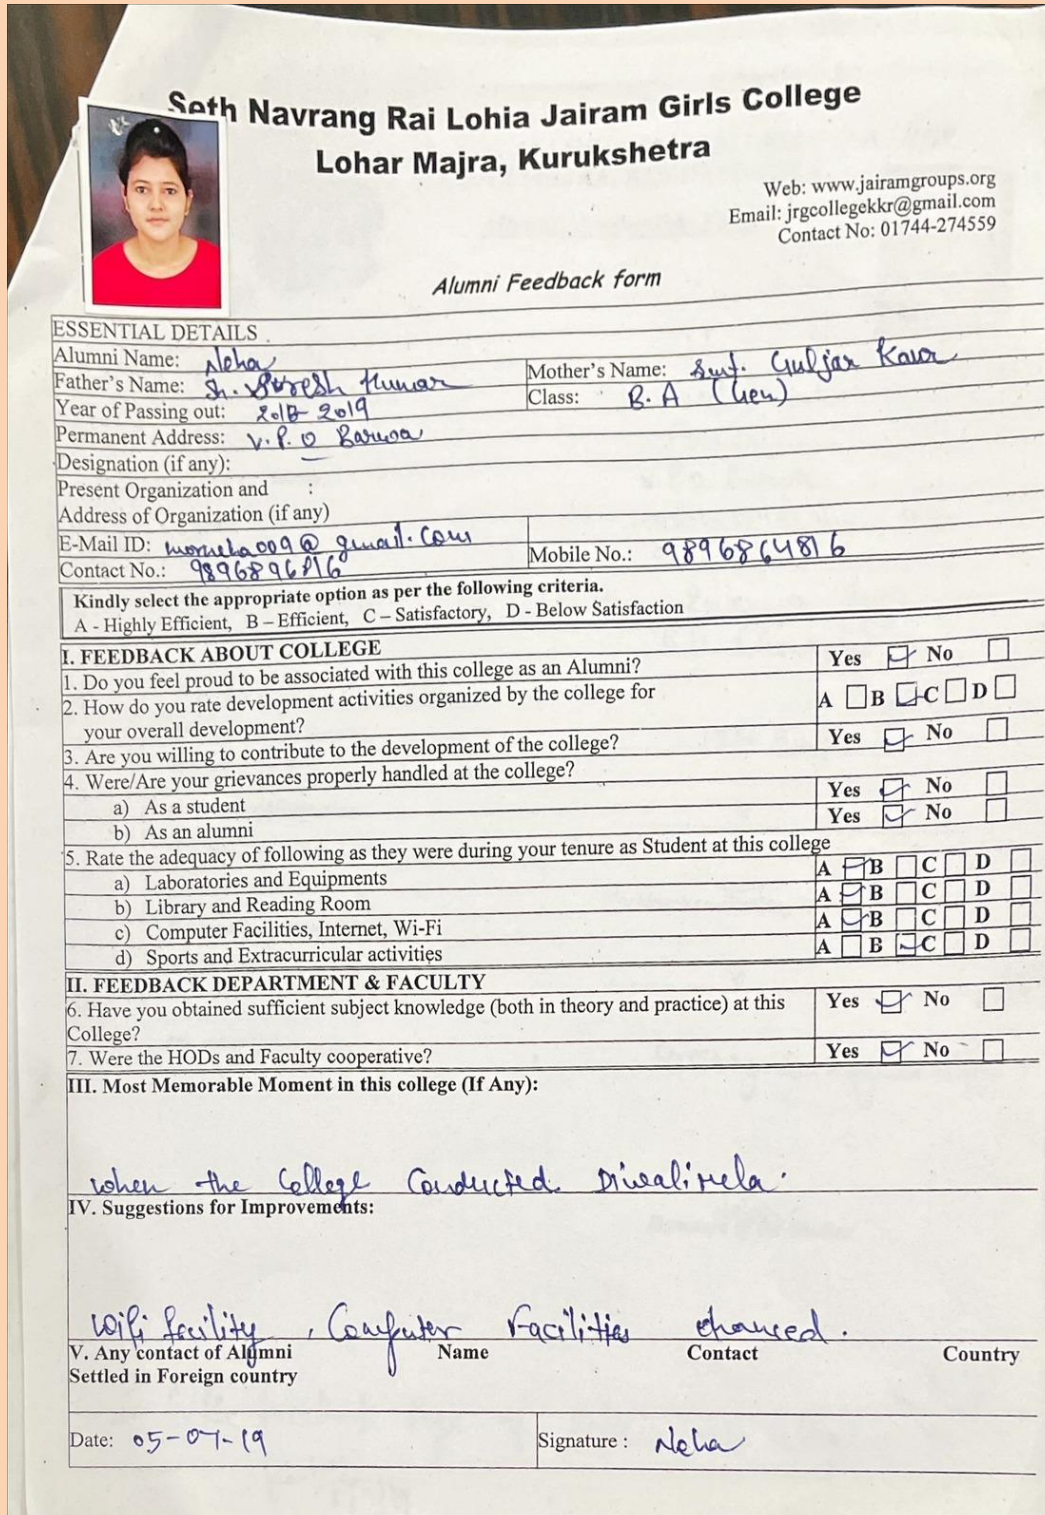 Seth Navrang Rai Lohia Jairam Girls College
Lohar Majra, Kurukshetra
Web: www.jairamgroups.org
Email: jrgcollegekkr@gmail.com
Contact No: 01744-274559
Alumni Feedback form
ESSENTIAL DETAILS
Alumni Name: Neha
Mother's Name: Smt. Guljar Kaur
Father's Name: Sh. Suresh Kumar
Class: B.A (Gen)
Year of Passing out: 2019
Permanent Address: V.P.O Barwa
Designation (if any):
Present Organization and :
Address of Organization (if any)
E-Mail ID: @ gmail.com
Mobile No.: 9896864816
Contact No.: 9896896816
Kindly select the appropriate option as per the following criteria.
A - Highly Efficient, B – Efficient, C – Satisfactory, D - Below Satisfaction
I. FEEDBACK ABOUT COLLEGE
1. Do you feel proud to be associated with this college as an Alumni? Yes No
2. How do you rate development activities organized by the college for A B C D
your overall development?
3. Are you willing to contribute to the development of the college? Yes No
4. Were/Are your grievances properly handled at the college?
a) As a student Yes No
b) As an alumni Yes No
5. Rate the adequacy of following as they were during your tenure as Student at this college
a) Laboratories and Equipments A B C D
b) Library and Reading Room A B C D
c) Computer Facilities, Internet, Wi-Fi A B C D
d) Sports and Extracurricular activities A B C D
II. FEEDBACK DEPARTMENT & FACULTY
6. Have you obtained sufficient subject knowledge (both in theory and practice) at this Yes No
College?
7. Were the HODs and Faculty cooperative? Yes No
III. Most Memorable Moment in this college (If Any):
when the College Conducted Diwali Mela.
IV. Suggestions for Improvements:
Wifi facility, Computer Facilities
V. Any contact of Alumni Name Contact Country
Settled in Foreign country
Date: 05-07-19
Signature : Neha